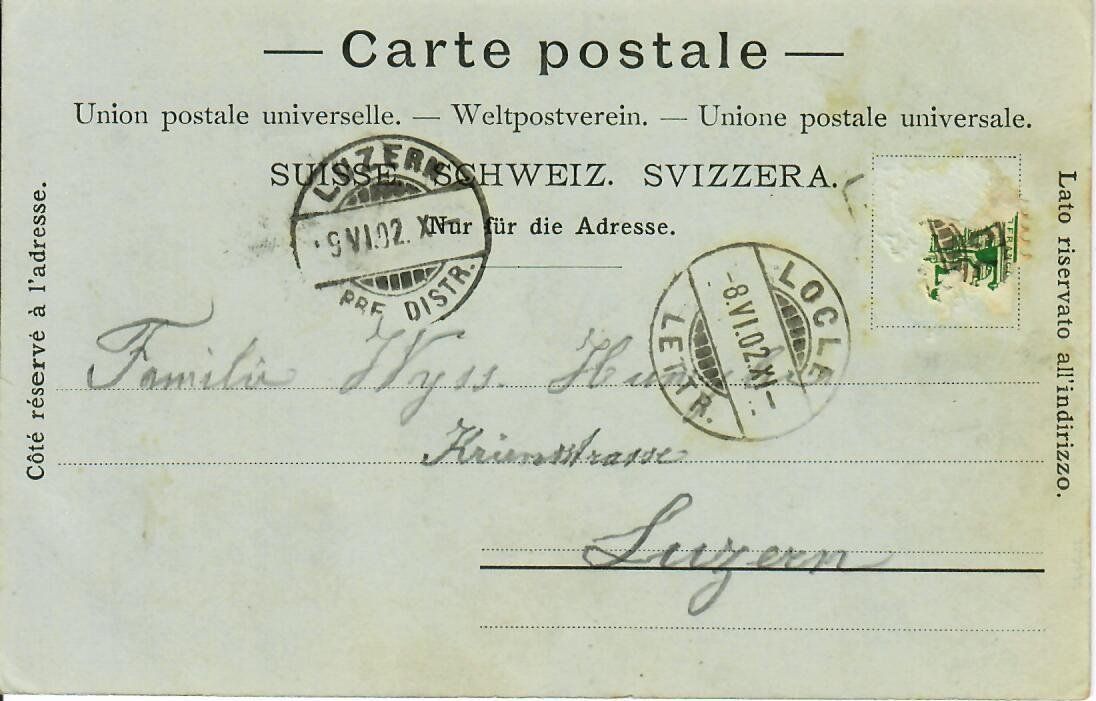 — Carte postale —
Union postale universelle. — Weltpostverein. — Unione postale universale.
SUISSE. SCHWEIZ. SVIZZERA.
Nur für die Adresse.
Côté réservé à l'adresse.
Lato riservato all'indirizzo.
LUZERN
9 VI.02. X
PRE DISTR.
LOCLE
-8.VI.02.XI-
LETTR.
FRANCO
Familie Wyss.
Luzern